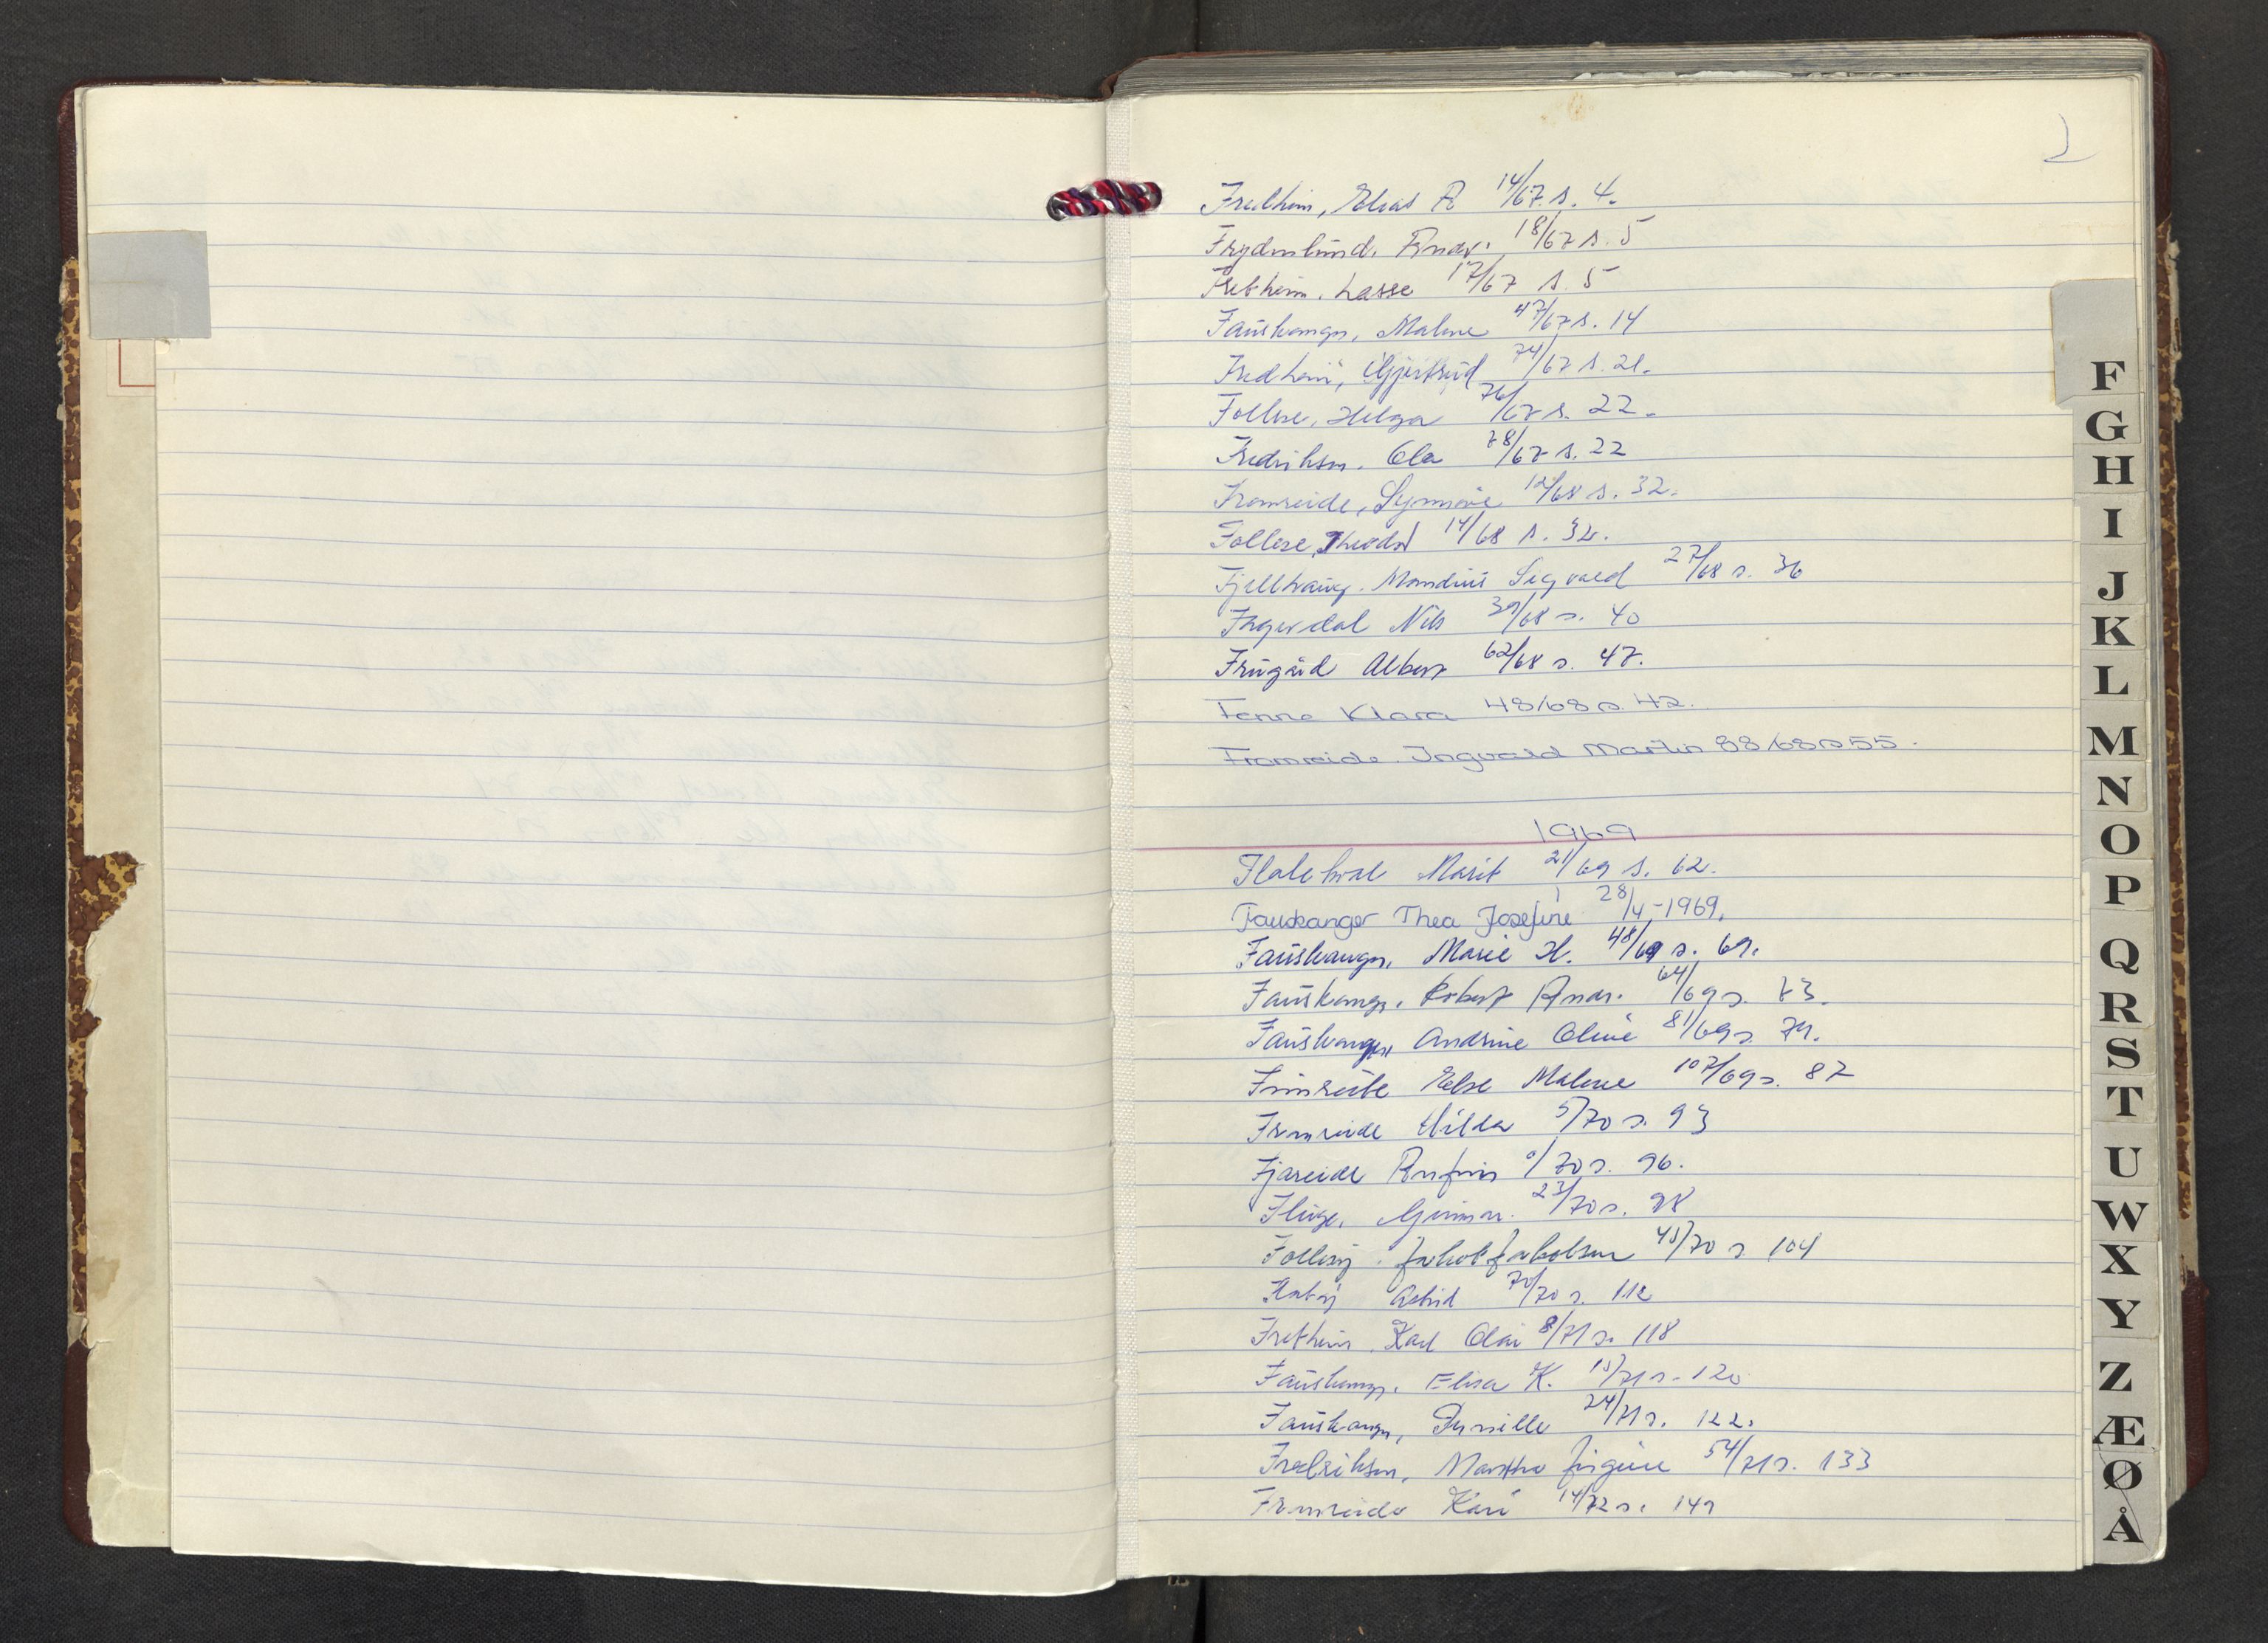 2
Fredheim, Elias A 14/67 s. 4.
Frydenlund. Andr. 18/67 s. 5
Fretheim. Lasse 17/67 s. 5
Fauskanger, Malene 47/67 s. 14
Fredheim, Gjertrud 74/67 s. 21.
Follese, Helga 76/67 s. 22.
Fredriksen. Ola 78/67 s. 22
Fromreide, Synnøve 12/68 s. 32.
Follese, Theodor 14/68 s. 32.
Fjellhaug. Mondius Sigvald 27/68 s. 36
Nils 39/68 s. 40
Frugård Albert 62/68 s. 47.
Fenne Klara 48/68 s. 42.
Fromreide. Ingvald Martin 88/68 s 55.
1969
Marit 21/69 s. 62.
Fauskanger Thea Josefine 28/4-1969.
Fauskanger, Marie H. 48/69 s. 69.
Fauskanger, Robert Andr. 64/69 s. 73.
Fauskanger, Andrine Oline 81/69 s. 79.
Else Malene 107/69 s. 87
Fromreide Hilda 5/70 s. 93
Fjæreide /70 s. 96.
Gunnar. 23/70 s. 98
Jakob Jakobsen 45/70 s 104
Astrid 70/70 s. 112
Fretheim Karl Olai 8/71 s. 118
Fauskanger, Elisa K. 15/71 s. 120
Fauskanger, Pernille 24/71 s. 122.
Fredriksen, Martha 54/71 s. 133
Fromreide Kari 14/72 s. 149
F
G
H
I
J
K
L
M
N
O
P
Q
R
S
T
U
W
X
Y
Z
Æ
Ø
Å